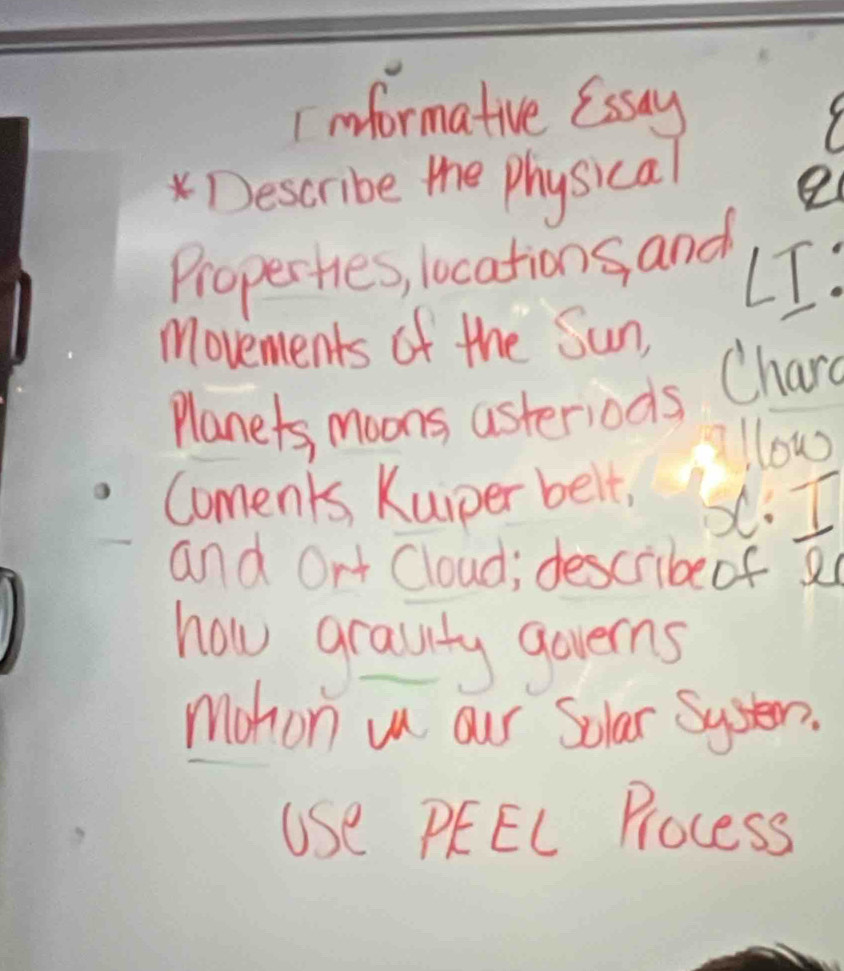 Informative Essay
* Describe the physical
Properties, locations, and
LI:
Movements of the Sun,
Planets, moons, asteriods,
Coments, Kuiper belt,
SC: I
and Ort Cloud; describe of
how gravity governs
motion in our Solar System.
Use PEEL Process